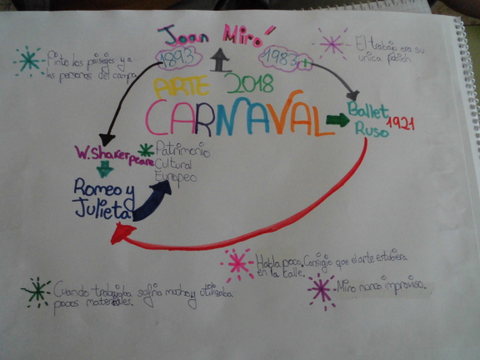 Joan Miró
1893
1983+
Pinto los paisajes y a
las personas del campo.
El trabajo era su
única pasión
ARTE 2018
CARNAVAL
Ballet
Ruso 1921
W. Shakerpeare
Romeo y
Julieta
Patrimonio
Cultural
Europeo
Habla poco. Consigio que el arte estubiera
en la calle.
Cuando trabajaba sufria mucho y utilizaba
pocos materiales.
Miro nunca improvisa.